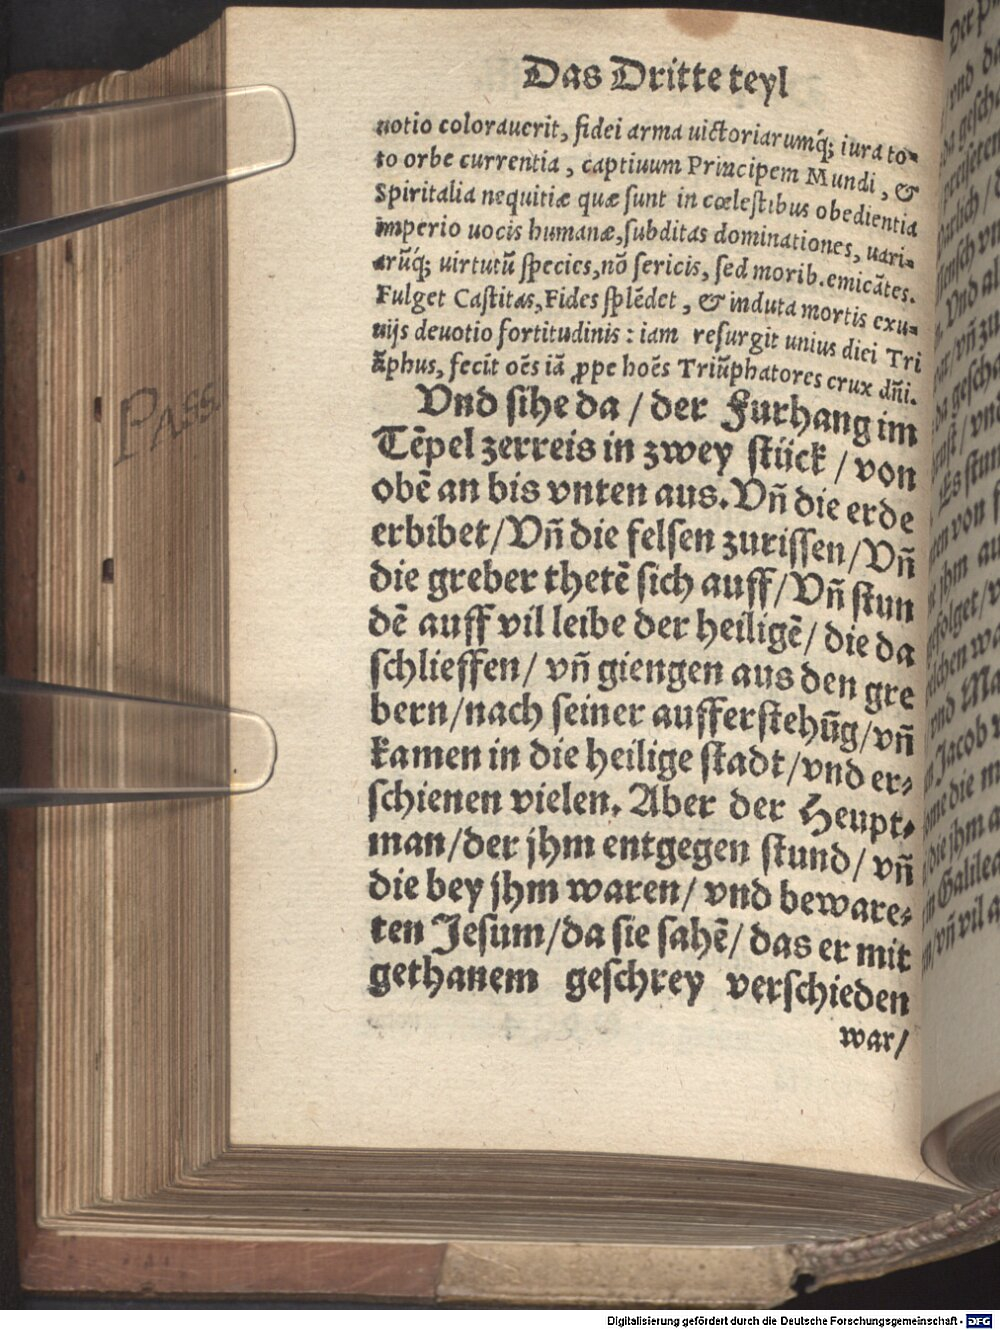 Das Dritte teyl
uotio colorauerit, fidei arma uictoriarumq́; iura to⸗
to orbe currentia, captiuum Principem Mundi, &
Spiritalia nequitiæ quæ sunt in cœlestibus obedientia
imperio uocis humanæ, subditas dominationes, uari⸗
arũq́; uirtutũ species, nõ sericis, sed morib. emicãtes.
Fulget Castitas, Fides splẽdet, & induta mortis exu⸗
uijs deuotio fortitudinis : iam resurgit unius diei Tri
ũphus, fecit oẽs iã ꝓpe hoẽs Triũphatores crux dñi.
Vnd sihe da / der Furhang im
Tẽpel zerreis in zwey stück / von
obẽ an bis vnten aus. Vñ die erde
erbibet / Vñ die felsen zurissen / Vñ
die greber thetẽ sich auff / Vñ stun
dẽ auff vil leibe der heiligẽ / die da
schlieffen / vñ giengen aus den gre
bern / nach seiner aufferstehũg / vñ
kamen in die heilige stadt / vnd er⸗
schienen vielen. Aber der Heupt⸗
man / der jhm entgegen stund / vñ
die bey jhm waren / vnd beware⸗
ten Jesum / da sie sahẽ / das er mit
gethanem geschrey verschieden
war /
PASS
Digitalisierung gefördert durch die Deutsche Forschungsgemeinschaft - DFG